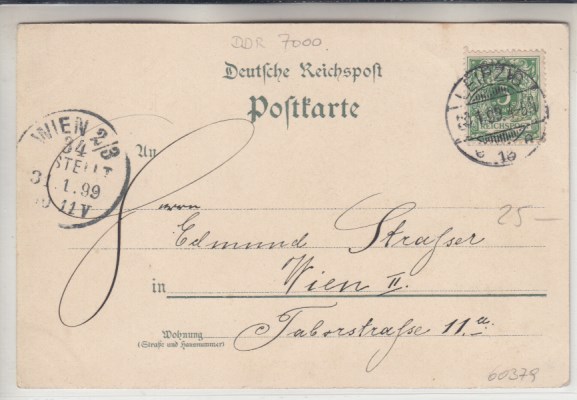 DDR 7000
Deutsche Reichspost
Postkarte
LEIPZIG
REICHSPOST
WIEN 2/3
34
BESTELLT
1.99
11 V
An
Herrn
Edmund Straßer
25 —
in Wien II.
Wohnung
(Straße und Hausnummer)
Taborstraße 11.a.
60379